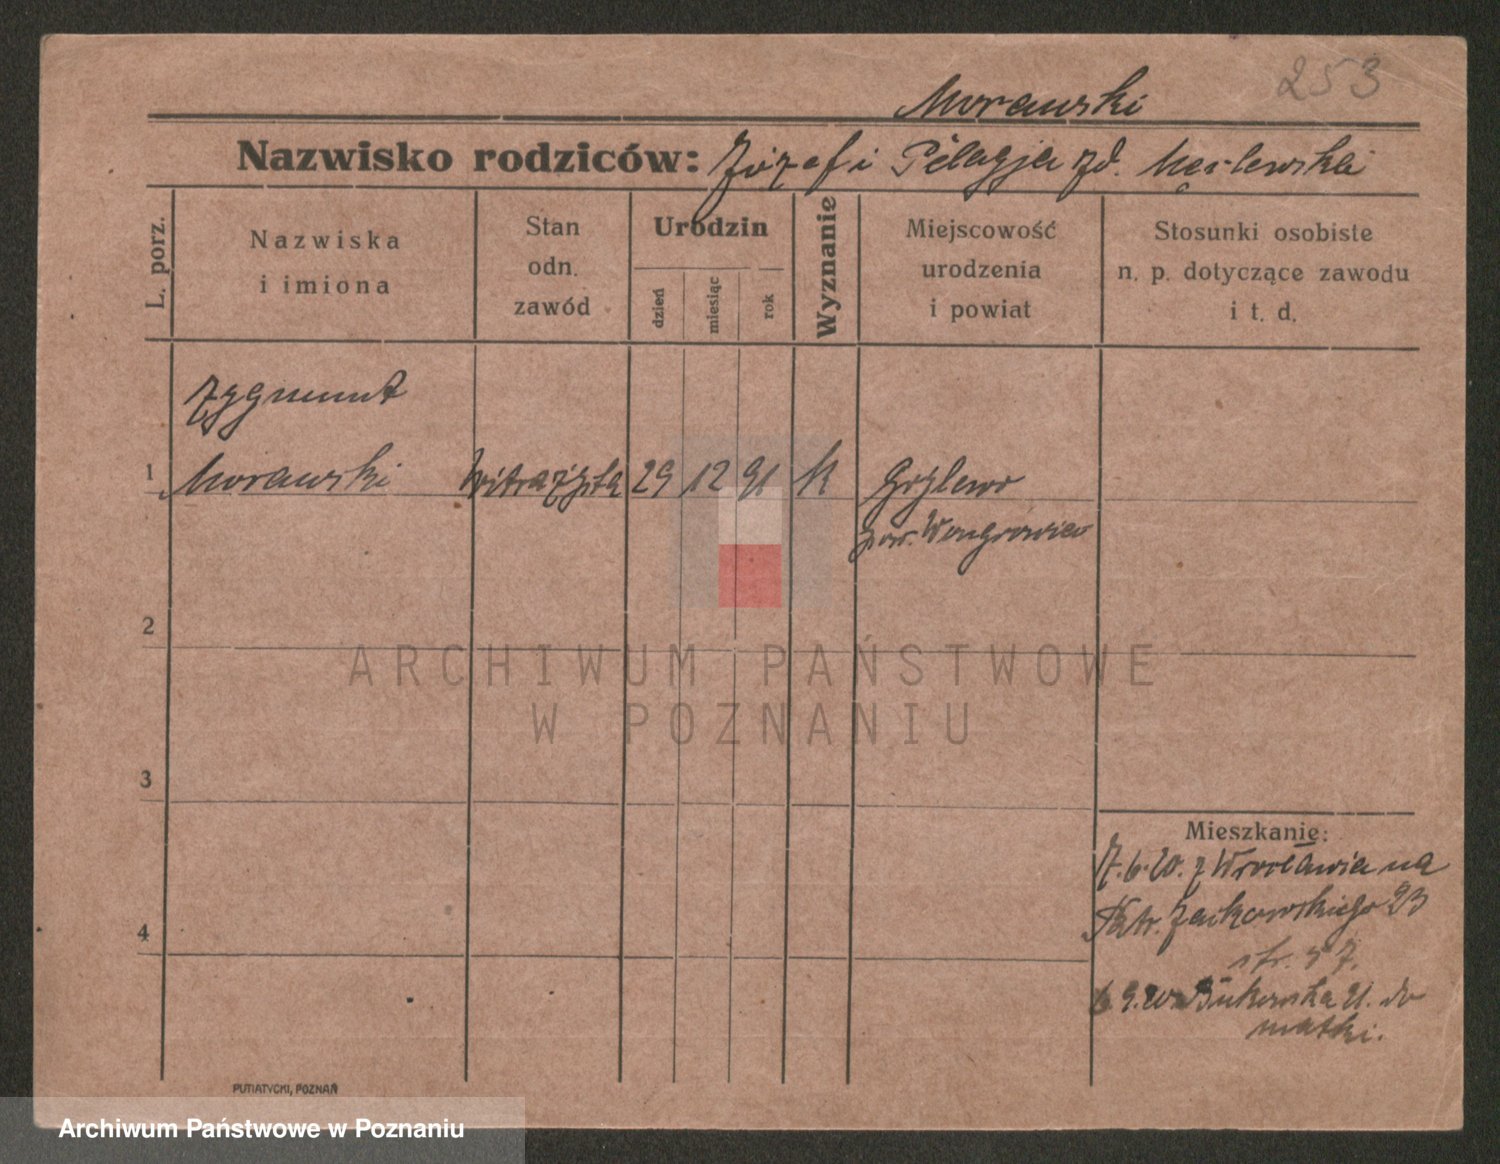 253
Morawski
Nazwisko rodziców: Józef i Pelagja zd.
L. porz.
Nazwiska
i imiona
Stan
odn.
zawód
Urodzin
dzień
miesiąc
rok
Wyznanie
Miejscowość
urodzenia
i powiat
Stosunki osobiste
n. p. dotyczące zawodu
i t. d.
Zygmunt
1 Morawski witrażysta 29 12 91 k Gołlewo
pow. Wongrowiec
2
ARCHIWUM PAŃSTWOWE
W POZNANIU
3
Mieszkanie:
7.6.20. z Wrocławia na
Patr. Jackowskiego 23
4
str. 57.
6 9. 20 Bukowska 21. do
matki.
PUTIATYCKI, POZNAŃ
Archiwum Państwowe w Poznaniu